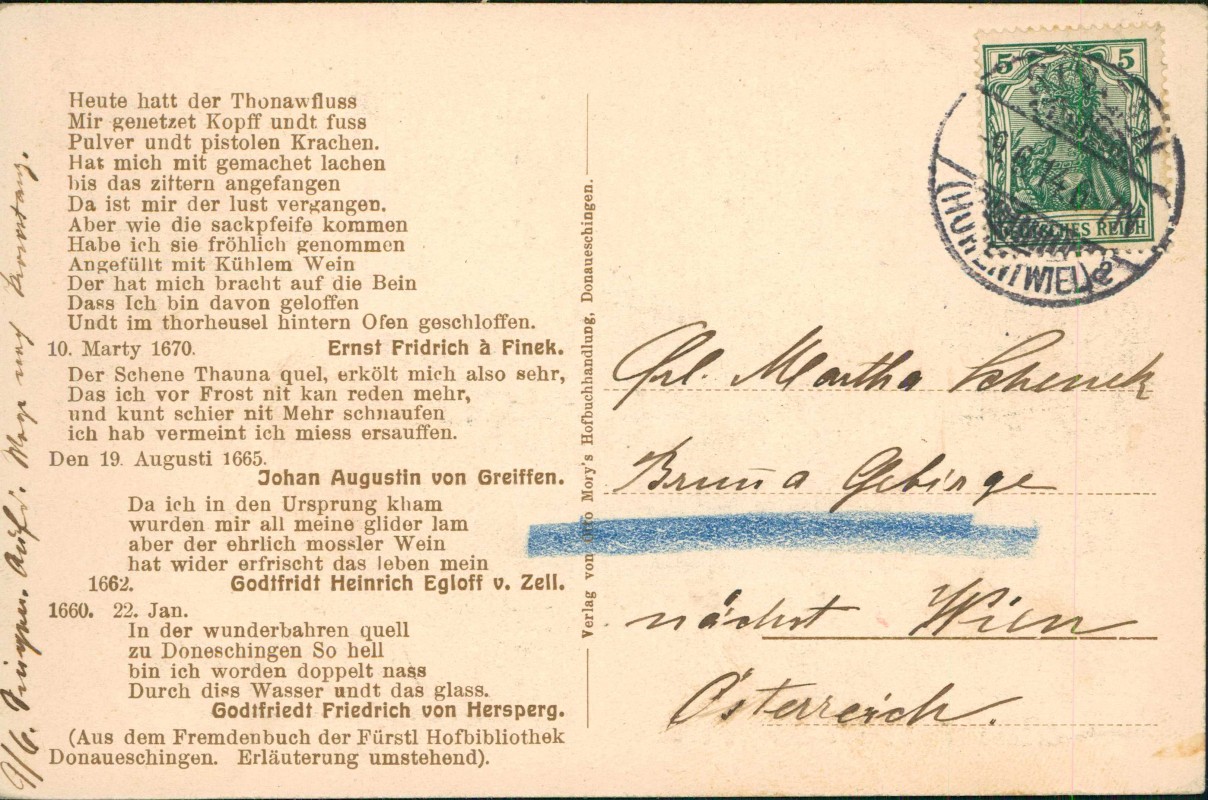 Heute hatt der Thonawfluss
Mir genetzet Kopff undt fuss
Pulver undt pistolen Krachen.
Hat mich mit gemachet lachen
bis das zittern angefangen
Da ist mir der lust vergangen.
Aber wie die sackpfeife kommen
Habe ich sie fröhlich genommen
Angefüllt mit Kühlem Wein
Der hat mich bracht auf die Bein
Dass Ich bin davon geloffen
Undt im thorheusel hintern Ofen geschloffen.
10. Marty 1670. Ernst Fridrich à Finek.
Der Schene Thauna quel, erkölt mich also sehr,
Das ich vor Frost nit kan reden mehr,
und kunt schier nit Mehr schnaufen
ich hab vermeint ich miess ersauffen.
Den 19. Augusti 1665.
Johan Augustin von Greiffen.
Da ich in den Ursprung kham
wurden mir all meine glider lam
aber der ehrlich mossler Wein
hat wider erfrischt das leben mein
1662. Godtfridt Heinrich Egloff v. Zell.
1660. 22. Jan.
In der wunderbahren quell
zu Doneschingen So hell
bin ich worden doppelt nass
Durch diss Wasser undt das glass.
Godtfriedt Friedrich von Hersperg.
(Aus dem Fremdenbuch der Fürstl Hofbibliothek
Donaueschingen. Erläuterung umstehend).
9/6. Singen.
Verlag von Otto Mory's Hofbuchhandlung, Donaueschingen.
5 5
DEUTSCHES REICH
SINGEN
9.6.14
(HOHENTWIEL) 2
Frl. Martha Schenek
Brunna Gebirge
nächst Wien
Österreich.